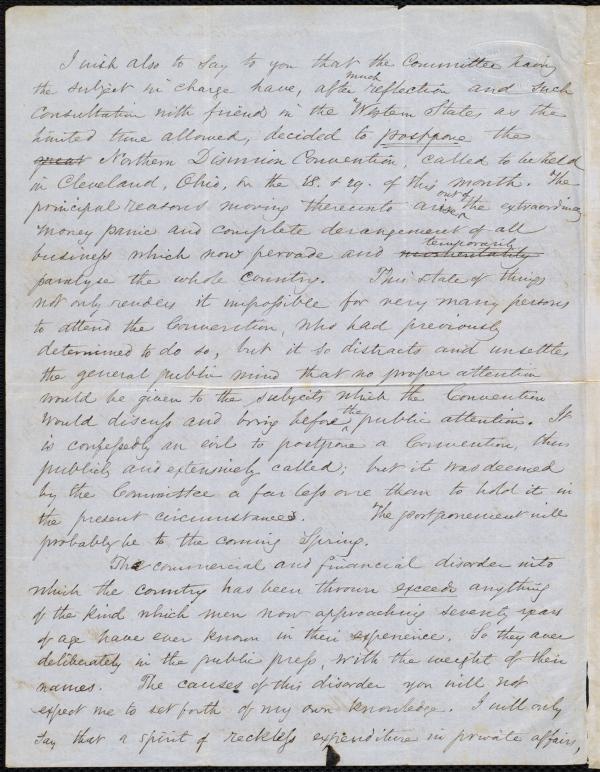 I wish also to say to you that the Committee having
the subject in charge have, after much reflection and such
Consultation with friend in the Western States as the
limited time allowed, decided to postpone the
great Northern Disunion Convention, called to be held
in Cleveland, Ohio, on the 28. & 29. of this month. The
principal reasons moving thereunto are out of the extraordinary
money panic and complete derangement of all
business which now pervade and momentarily temporarily
paralyse the whole country. This state of things
not only renders it impossible for very many persons
to attend the Convention, who had previously
determined to do so, but it so distracts and unsettles
the general public mind that no proper attention
would be given to the subjects which the Convention
would discuss and bring before the public attention. It
is confessedly an evil to postpone a Convention, thus
publicly and extensively called; but it was deemed
by the Committee a far less one than to hold it in
the present circumstances. The postponement will
probably be to the coming Spring.
The commercial and financial disorder into
which the country has been thrown exceeds anything
of the kind which men now approaching seventy years
of age have ever known in their experience. So they aver
deliberately in the public press, with the weight of their
names. The causes of this disorder you will not
expect me to set forth of my own knowledge. I will only
say that a spirit of reckless expenditure in private affairs,